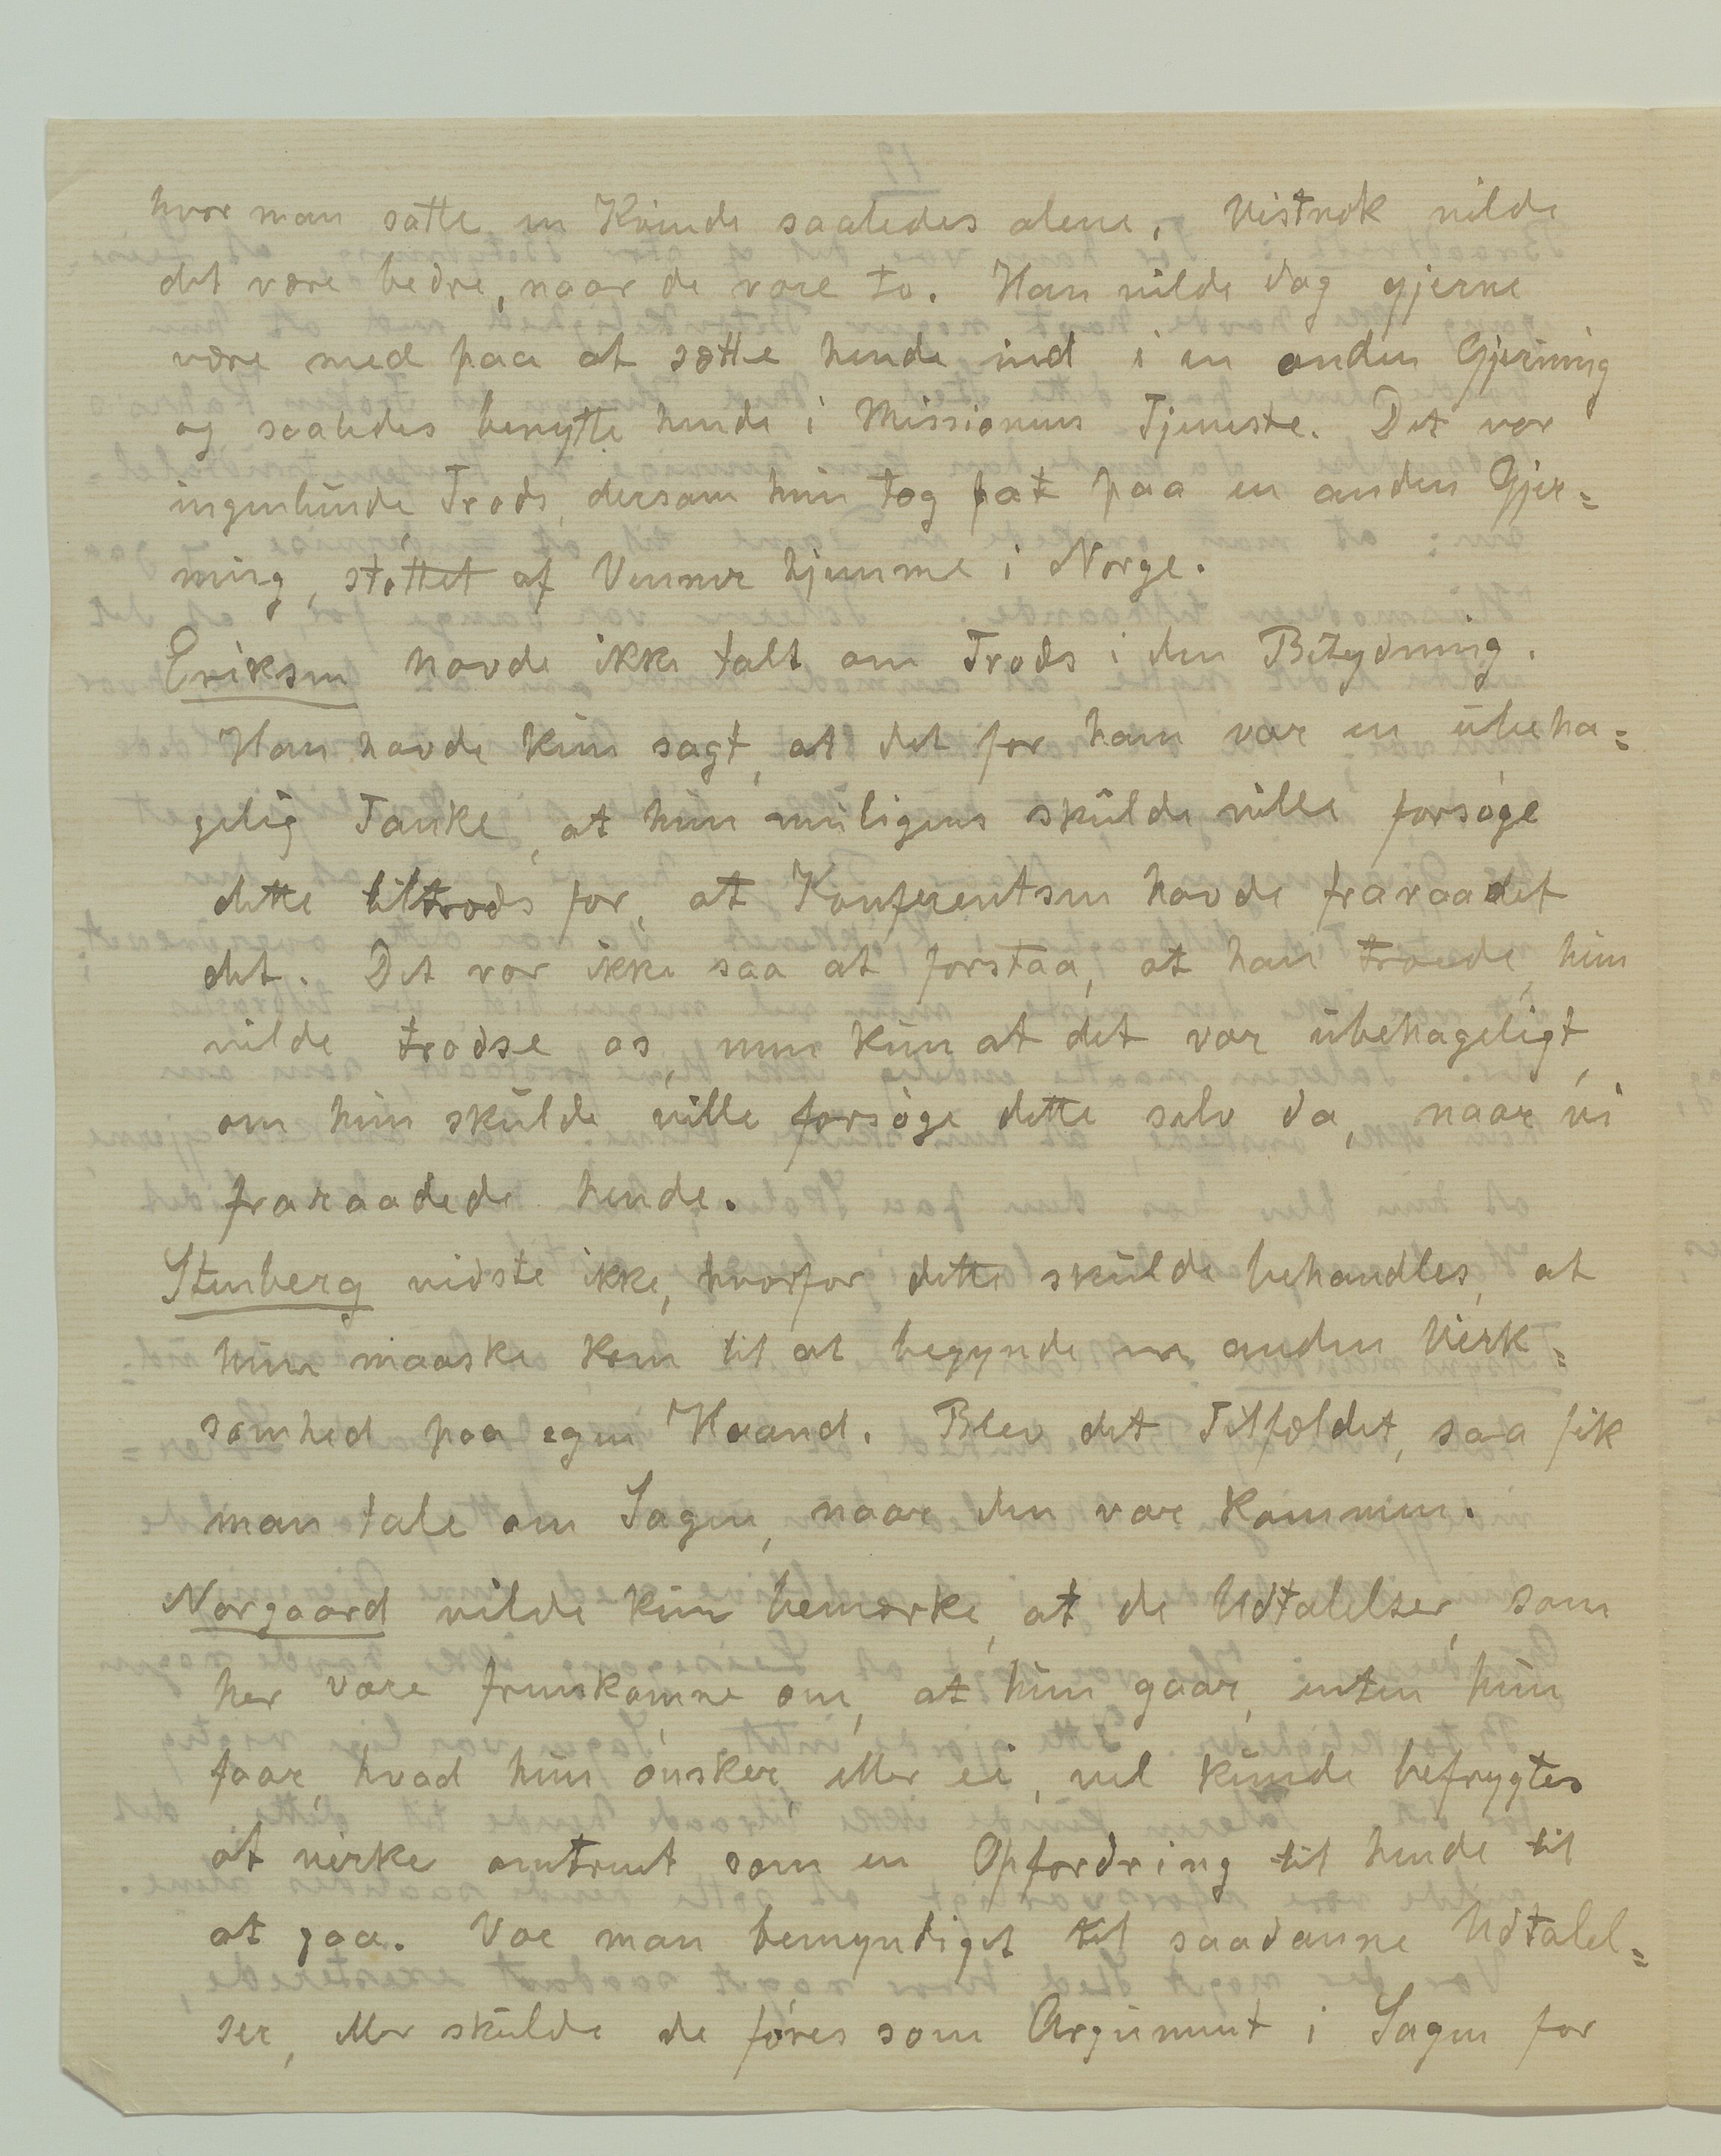 hvor man satte en Kvinde saaledes alene. Vistnok vilde
det være bedre, naar de vare to. Han vilde dog gjerne
være med paa at sætte hende ind i en anden Gjerning
og saaledes benytte hende i Missionens Tjeneste. Det var
ingenlunde Trods, dersom hun tog fat paa en anden Gjer=
ning, støttet af Venner hjemme i Norge.
Eriksen havde ikke talt om Trods i den Betydning.
Han havde kun sagt, at det for ham var en ubeha=
gelig Tanke, at hun muligens skulde ville forsøge
dette tiltrods for, at Konferentsen havde fraraadet
det. Det var ikke saa at forstaa, at han troede, hun
vilde trodse os, men kun at det var ubehageligt,
om hun skulde ville forsøge dette selv da, naar vi
fraraadede hende.
Stenberg vidste ikke, hvorfor dette skulde behandles, at
hun maaske kom til at begynde en anden Virk=
somhed paa egen Haand. Blev det Tilfældet, saa fik
man tale om Sagen, naar den var kommen.
Nørgaard vilde kun bemærke, at de Udtalelser, som
her vare fremkomne om, at hun gaar, enten hun
faar, hvad hun ønsker, eller ei, vel kunde befrygtes
at virke omtrent som en Opfordring til hende til
at gaa. Var man bemyndiget til saadanne Udtalel=
ser, eller skulde de føres som Argument i Sagen for